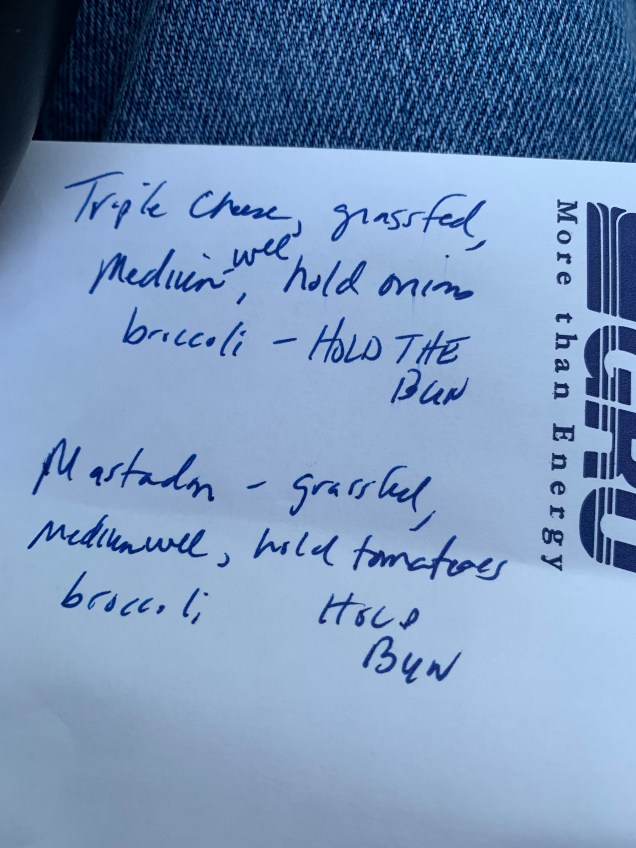 Triple Cheese, grassfed,
Medium-well, hold onions
broccoli - HOLD THE
BUN
Mastadon - grassfed,
Mediumwell, hold tomatoes
broccoli HOLD
BUN
GRU
More than Energy